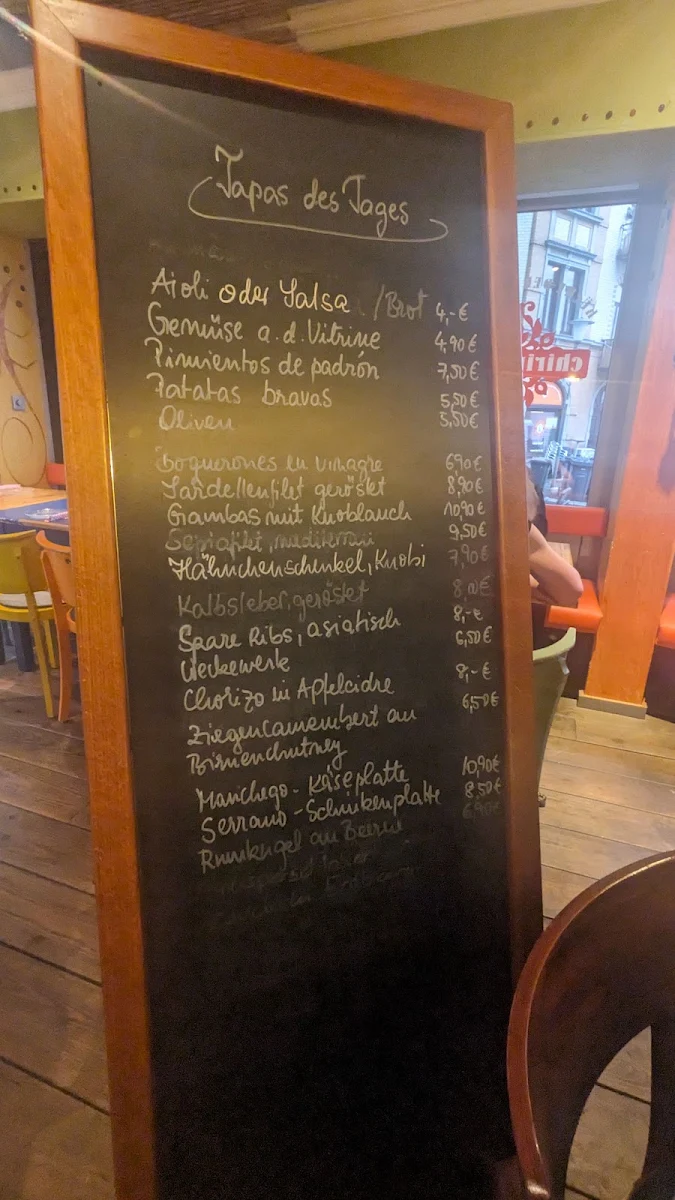 Tapas des Tages
Aioli oder Salsa /Brot 4,-€
Gemüse a.d. Vitrine 4,90€
Pimientos de padrón 7,50€
Patatas bravas 5,50€
Oliven 5,50€
Boquerones en vinagre 6,90€
Sardellenfilet geröstet 8,90€
Gambas mit Knoblauch 10,90€
9,50€
Hähnchenschenkel, Knobi 7,90€
Kalbsleber, geröstet
Spare Ribs, asiatisch 8,-€
Weckewerk 6,50€
Chorizo in Apfelcidre 8,-€
Ziegencamembert an 6,50€
Birnenchutney
Manchego-Käseplatte 10,90€
Serrano-Schinkenplatte 8,50€
an Beeren 6,90€
chiri